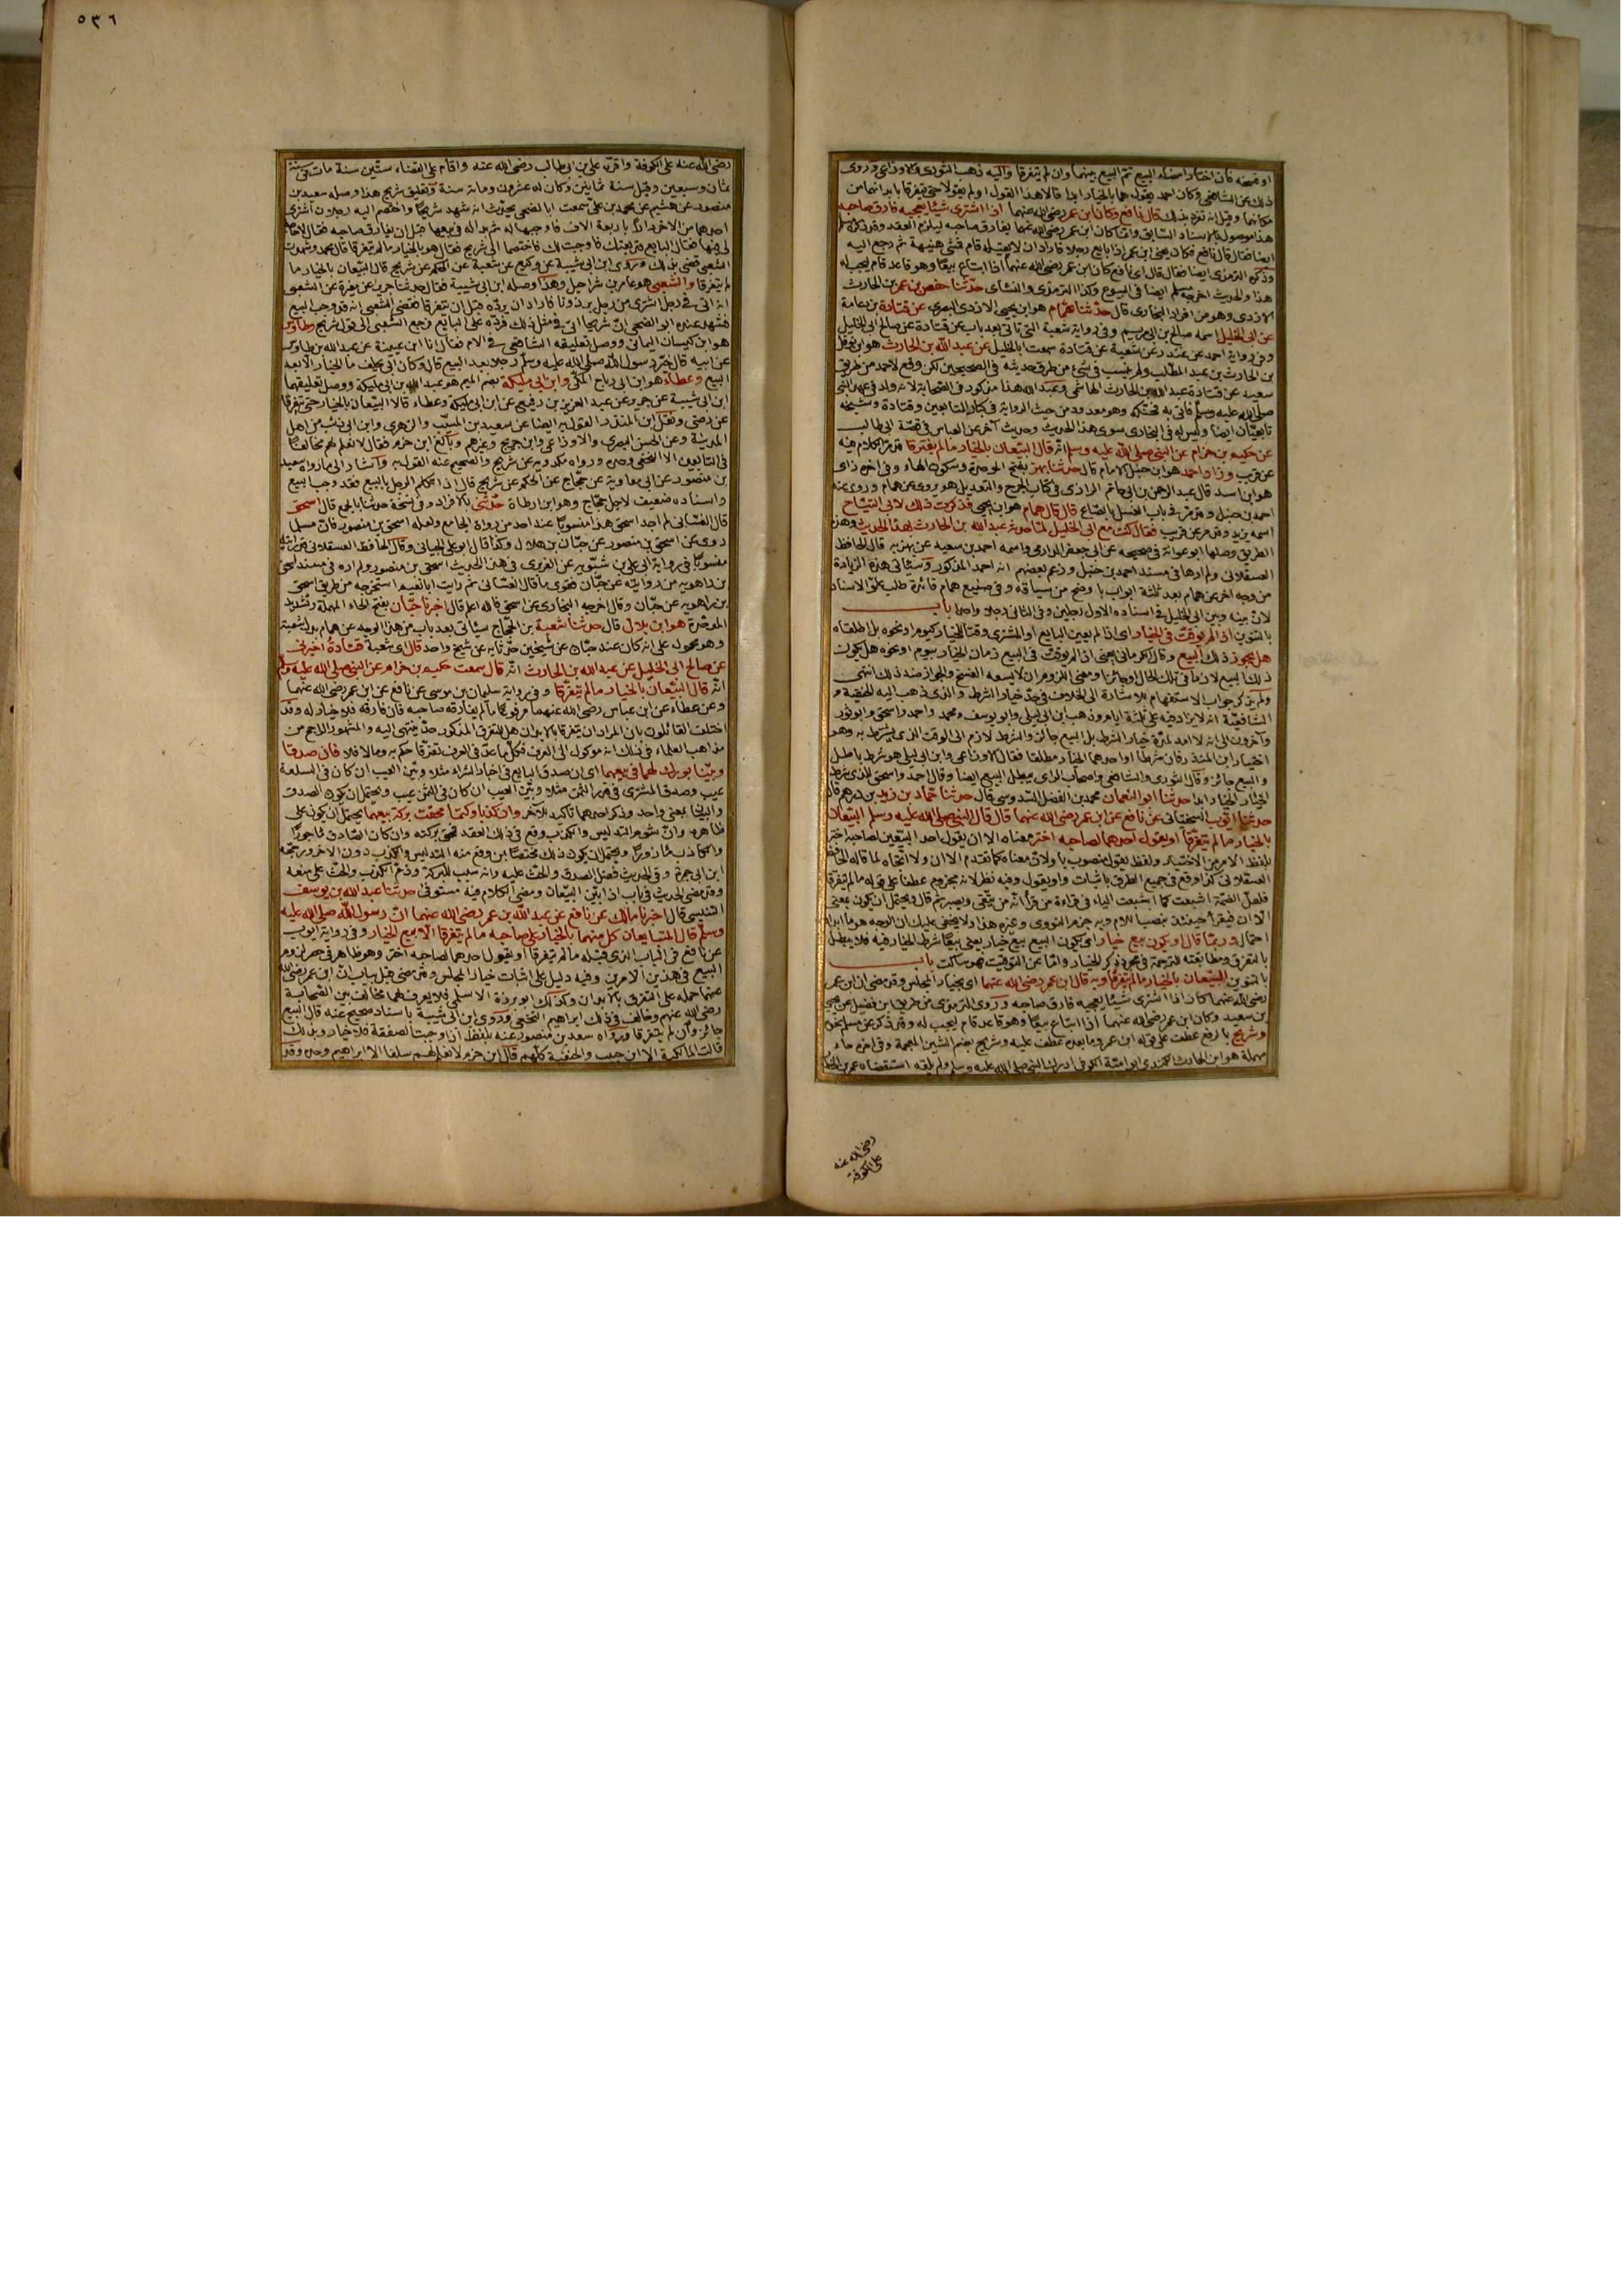 او فسخه فان اختار امضاء البيع تم البيع بينهما وان لم يتفرقا واليه ذهب الثورى والاوزاعى وروى
ذلك عن الشافعى وكان احمد يقول هما بالخيار ابدا قالا هذا القول او لم يقولا حتى يتفرقا بابدانهما من
مكانهما وقيل انه تفرد بذلك قال نافع وكان ابن عمر رضى الله عنهما اذا اشترى شيئا يعجبه فارق صاحبه
هذا موصول بالاسناد السابق وانما كان ابن عمر رضى الله عنهما يفارق صاحبه ليلزم العقد وقد ذكره مسلم
ايضا فقال قال نافع فكان يعنى ابن عمر اذا بايع رجلا فاراد ان لا يقيله قام فمشى هنيهة ثم رجع اليه
وذكره الترمذى ايضا فقال قال اى نافع كان ابن عمر رضى الله عنهما اذا ابتاع بيعا وهو قاعد قام ليجب له
هذا والحديث اخرجه مسلم ايضا فى البيوع وكذا الترمذى والنسائى حدثنا حفص بن عمر بن الحارث
الازدى وهو من افراد البخارى قال حدثنا همام هو ابن يحيى الازدى البصرى عن قتادة بن دعامة
عن ابى الخليل اسمه صالح بن ابى مريم وفى رواية شعبة التى تاتى بعد باب عن قتادة عن صالح ابى الخليل
وفى رواية احمد عن غندر عن شعبة عن قتادة سمعت ابا الخليل عن عبد الله بن الحارث هو ابن نوفل
بن الحارث بن عبد المطلب ولم ينسب فى شئ من طرق حديثه فى الصحيحين لكن وقع لاحمد من طريق
سعيد عن قتادة عبد الله بن الحارث الهاشمى وعبد الله هذا مذكور فى الصحابة لانه ولد فى عهد النبى
صلى الله عليه وسلم فاتى به فحنكه وهو معدود من حيث الرواية فى كبار التابعين وقتادة وشيخه
تابعيان ايضا وليس له فى البخارى سوى هذا الحديث وحديث آخر عن العباس فى قصة ابى طالب
عن حكيم بن حزام عن النبى صلى الله عليه وسلم انه قال البيعان بالخيار ما لم يفترقا قد مر الكلام فيه
عن قريب وزاد احمد هو ابن حنبل الامام قال حدثنا بهز بفتح الموحدة وسكون الهاء وفى اخره زاى
هو ابن اسد قال عبد الرحمن بن ابى حاتم الرازى فى كتاب الجرح والتعديل هو روى عن همام وروى عنه
احمد بن حنبل وقد مر فى باب الغسل بالصاع قال قال همام هو ابن يحيى فذكرت ذلك لابى التياح
اسمه يزيد وقد مر عن قريب فقال كنت مع ابى الخليل لما حدثه عبد الله بن الحارث بهذا الحديث وهذه
الطريق وصلها ابو عوانة فى صحيحه عن ابى جعفر الدارمى واسمه احمد بن سعيد عن بهز به قال الحافظ
العسقلانى ولم ارها فى مسند احمد بن حنبل وزعم بعضهم انه احمد المذكور وستاتى هذه الزيادة
من وجه اخر عن همام بعد ثلثة ابواب باوضح من سياقه وفى صنيع همام فائدة طلب علو الاسناد
لان بينه وبين ابى الخليل فى اسناده الاول رجلين وفى الثانى رجلا واحدا باب
بالتنوين اذا لم يوقت فى الخيار اى اذا لم يعين البايع او المشترى وقتا للخيار كيوم او نحوه بل اطلقاه
هل يجوز ذلك البيع وقال الكرمانى يعنى اذا لم يوقت فى البيع زمان الخيار بيوم او نحوه هل يكون
ذلك البيع لازما فى تلك الحال او جائزا ومعنى اللزوم ان لا يسعه الفسخ والجواز ضد ذلك انتهى
ولم يذكر جواب الاستفهام بلا اشارة الى الخلاف فى حد خيار الشرط والذى ذهب اليه الحنفية و
الشافعية انه لا يزاد فيه على ثلثة ايام وذهب ابن ابى ليلى وابو يوسف ومحمد واحمد واسحق وابو ثور
وآخرون الى انه لا امد لمدة خيار الشرط بل البيع جائز والشرط لازم الى الوقت الذى يشترط به وهو
اختيار ابن المنذر فان شرطا او احدهما الخيار مطلقا فقال الاوزاعى وابن ابى ليلى هو شرط باطل
والبيع جائز وقال الثورى والشافعى واصحاب الراى يبطل البيع ايضا وقال احمد واسحق للذى شرط
الخيار الخيار ابدا حدثنا ابو النعمان محمد بن الفضل السدوسى قال حدثنا حماد بن زيد بن درهم قال
حدثنا ايوب السختيانى عن نافع عن ابن عمر رضى الله عنهما قال قال النبى صلى الله عليه وسلم البيعان
بالخيار ما لم يتفرقا او يقول احدهما لصاحبه اختر معناه الا ان يقول احد البيعين لصاحبه اختر
بلفظ الامر من الاختيار ولفظ يقول منصوب باو لان معناه كما تقدم الا ان ولا اتجاه لما قاله الحافظ
العسقلانى كذا وقع فى جميع الطرق باثبات واو يقول وفيه نظر لانه مجزوم عطفا على قوله ما لم يتفرقا
فلعل الضمة اشبعت كما اشبعت الياء فى قراءة من قرأ انه من يتقى ويصبر ثم قال ويحتمل ان يكون بمعنى
الا ان فيقرأ حينئذ بنصب اللام وبه جزم النووى وغيره هذا ولا يخفى عليك ان الوجه هو ما ابداه
احتمالا وربما قال او يكون بيع خيار اى يكون البيع بيع خيار يعنى بيعا شرط الخيار فيه فلا يبطل
بالتفرق ومطابقته للترجمة فى مجرد ذكر الخيار واما عن التوقيت فهو ساكت باب
بالتنوين البيعان بالخيار ما لم يتفرقا وبه قال ابن عمر رضى الله عنهما اى بخيار المجلس وقد مضى ان ابن عمر
رضى الله عنهما كان اذا اشترى شيئا يعجبه فارق صاحبه وروى الترمذى من طريق ابن فضيل عن يحيى
بن سعيد وكان ابن عمر رضى الله عنهما اذا ابتاع بيعا وهو قاعد قام ليجب له وقد ذكر عن مسلم نحوه
وشريح بالرفع عطف على قوله ابن عمر وما بعده عطف عليه وشريح بضم الشين المعجمة وفى اخره حاء
مهملة هو ابن الحارث الكندى ابو امية الكوفى ادرك النبى صلى الله عليه وسلم ولم يلقه استقضاه عمر بن الخطاب
رضى الله عنه
على الكوفة
٥٣٦
رضى الله عنه على الكوفة واقره على بن ابى طالب رضى الله عنه واقام على القضاء ستين سنة مات فى سنة
ثمان وسبعين وقيل سنة ثمانين وكان له عشرون ومائة سنة وتعليق شريح هذا وصله سعيد بن
منصور عن هشيم عن محمد بن على سمعت ابا الضحى يحدث انه شهد شريحا واختصم اليه رجلان اشترى
احدهما من الاخر دارا باربعة الاف فاوجبها له ثم بدا له فى بيعها قبل ان يفارق صاحبه فقال لا حاجة
لى فيها فقال البايع قد بعتك فاوجبت لك فاختصما الى شريح فقال هو بالخيار ما لم يتفرقا قال محمد وشهدت
الشعبى قضى بذلك وروى ابن ابى شيبة عن وكيع عن شعبة عن الحكم عن شريح قال البيعان بالخيار ما
لم يتفرقا والشعبى هو عامر بن شراحيل وهذا وصله ابن ابى شيبة فقال حدثنا جرير عن مغيرة عن الشعبى
انه اتى فى رجل اشترى من رجل برذونا فاراد ان يرده قبل ان يتفرقا فقضى الشعبى انه قد وجب البيع
فشهد عنده ابو الضحى ان شريحا اتى فى مثل ذلك فرده على البايع فرجع الشعبى الى قول شريح وطاوس
هو ابن كيسان اليمانى ووصل تعليقه الشافعى فى الام فقال انا ابن عيينة عن عبد الله بن طاوس
عن ابيه قال خير رسول الله صلى الله عليه وسلم رجلا بعد البيع قال وكان ابى يحلف ما الخيار الا بعد
البيع وعطاء هو ابن ابى رباح المكى وابن ابى مليكة بضم الميم هو عبد الله بن ابى مليكة ووصل تعليقهما
ابن ابى شيبة عن جرير عن عبد العزيز بن رفيع عن ابن ابى مليكة وعطاء قالا البيعان بالخيار حتى يتفرقا
عن رضى ونقل ابن المنذر القول به ايضا عن سعيد بن المسيب والزهرى وابن ابى ذئب من اهل
المدينة وعن الحسن البصرى والاوزاعى وابن جريج وغيرهم وبالغ ابن حزم فقال لا نعلم لهم مخالفا
فى التابعين الا النخعى وحده ورواه مكذوبة عن شريح والصحيح عنه القول به واشار الى ما رواه سعيد
بن منصور عن ابى معاوية عن حجاج عن الحكم عن شريح قال اذا تكلم الرجل بالبيع فقد وجب البيع
واسناده ضعيف لاجل حجاج وهو ابن ارطاة حدثنى بالافراد وفى نسخة حدثنا بالجمع قال اسحق
قال الغسانى لم اجد اسحق هذا منسوبا عند احد من رواة الجامع ولعله اسحق بن منصور فان مسلما
روى عن اسحق بن منصور عن حبان بن هلال وكذا قال ابو على الجيانى وقال الحافظ العسقلانى قد رايته
منسوبا فى رواية ابى على بن شبويه عن الفربرى فى هذا الحديث اسحق بن منصور ولم اره فى مسند اسحق
بن راهويه من روايته عن حبان فقوى ما قال الغسانى ثم رايت ابا نعيم استخرجه من طريق اسحق
بن راهويه عن حبان وقال اخرجه البخارى عن اسحق فالله اعلم قال اخبرنا حبان بفتح الحاء المهملة وتشديد
الموحدة هو ابن هلال قال حدثنا شعبة بن الحجاج سياتى بعد باب من هذا الوجه عن همام بدل شعبة
وهو محمول على انه كان عند حبان عن شيخين حدثاه به عن شيخ واحد قال اى شعبة قتادة اخبرنى
عن صالح ابى الخليل عن عبد الله بن الحارث انه قال سمعت حكيم بن حزام عن النبى صلى الله عليه وسلم
انه قال البيعان بالخيار ما لم يتفرقا وفى رواية سليمان بن موسى عن نافع عن ابن عمر رضى الله عنهما
وعن عطاء عن ابن عباس رضى الله عنهما مرفوعا ما لم يفارقه صاحبه فان فارقه فلا خيار له وقد
اختلف القائلون بان المراد ان يتفرقا بالابدان هل للتفرق المذكور حد ينتهى اليه والمشهور الراجح من
مذاهب العلماء فى ذلك انه موكول الى العرف فكل ما عد فى العرف تفرقا حكم به وما لا فلا فان صدقا
وبينا بورك لهما فى بيعهما اى ان صدق البايع فى اخبار المشتراه مثلا وبين العيب ان كان فى السلعة
عيب وصدق المشترى فى قدر الثمن مثلا وبين العيب ان كان فى الثمن عيب ويحتمل ان يكون الصدق
والبيان بمعنى واحد وذكر احدهما تاكيد للآخر وان كذبا وكتما محقت بركة بيعهما يحتمل ان يكون على
ظاهره وان شوم التدليس والكذب وقع فى ذلك العقد فمحق بركته وان كان الصادق ماجورا
والكاذب مازورا ويحتمل ان يكون ذلك مختصا بمن وقع منه التدليس والكذب دون الاخر ورجحه
ابن ابى جمرة وفى الحديث فضل الصدق والحث عليه وانه سبب للبركة وذم الكذب والحث على منعه
وقد مضى الحديث فى باب اذا بين البيعان ومضى الكلام فيه مستوفى حدثنا عبد الله بن يوسف
التنيسى قال اخبرنا مالك عن نافع عن عبد الله بن عمر رضى الله عنهما ان رسول الله صلى الله عليه
وسلم قال المتبايعان كل منهما بالخيار على صاحبه ما لم يتفرقا الا بيع الخيار وفى رواية ايوب
عن نافع فى الباب الذى قبله ما لم يتفرقا او يقول احدهما لصاحبه اختر وهو ظاهر فى حصر لزوم
البيع فى هذين الامرين وفيه دليل على اثبات خيار المجلس وقد مضى قبل بباب ان ابن عمر رضى الله
عنهما حمله على التفرق بالابدان وكذلك ابو برزة الاسلمى فلا يعرف لهما مخالف بين الصحابة
رضى الله عنهم وخالف فى ذلك ابراهيم النخعى وروى ابن ابى شيبة باسناد صحيح عنه قال البيع
جائز وان لم يتفرقا ورواه سعيد بن منصور عنه بلفظ اذا وجبت الصفقة فلا خيار وبذلك
قالت المالكية الا ابن حبيب والحنفية كلهم قال ابن حزم لا نعلم لهم سلفا الا ابراهيم وحده وقد